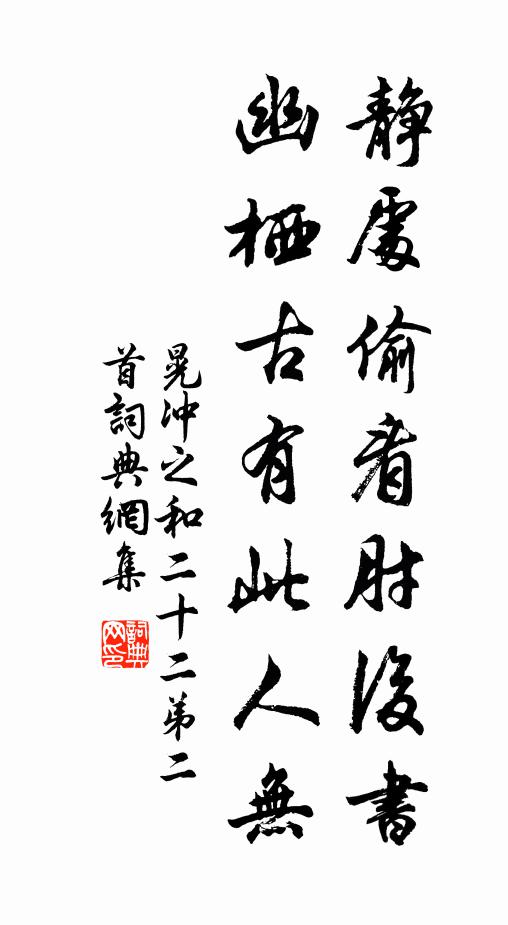 靜處偷看肘後書
幽栖古有此人無
晁沖之和二十二弟二
首詞典網集
詞典网印